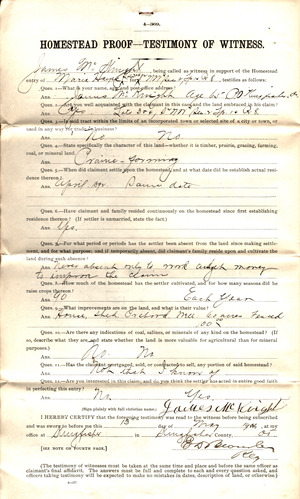 4-369.
HOMESTEAD PROOF—TESTIMONY OF WITNESS.
James McKnight being called as witness in support of the Homestead
entry of testifies as follows:
Ques. 1.—What is your name, age, and post-office address?
Ans. James McKnight Age
Ques. 2.—Are you well acquainted with the claimant in this case and the land embraced in his claim?
Ans. Yes
Ques. 3.—Is said tract within the limits of an incorporated town or selected site of a city or town, or
used in any way for trade or business?
Ans. No No
Ques. 4.—State specifically the character of this land—whether it is timber, prairie, grazing, farming,
coal, or mineral land.
Ans. Prairie - farming
Ques. 5.—When did claimant settle upon the homestead, and at what date did he establish actual resi-
dence thereon?
Ans. April Same date
Ques. 6.—Have claimant and family resided continuously on the homestead since first establishing
residence thereon? (If settler is unmarried, state the fact.)
Ans. Yes.
Ques. 7.—For what period or periods has the settler been absent from the land since making settle-
ment, and for what purpose; and if temporarily absent, did claimant's family reside upon and cultivate the
land during such absence?
Ans. never absent only to work money
to improve the claim
Ques. 8.—How much of the homestead has the settler cultivated, and for how many seasons did he
raise crops thereon?
Ans. 40 Each Year
Ques. 9.—What improvements are on the land, and what is their value?
Ans. House, Shed Orchard Well fenced
Ques. 10.—Are there any indications of coal, salines, or minerals of any kind on the homestead? (If
so, describe what they are, and state whether the land is more valuable for agricultural than for mineral
purposes.)
Ans. No. No
Ques. 11.—Has the claimant mortgaged, sold, or contracted to sell, any portion of said homestead?
Ans. Not that I know of
Ques. 12.—Are you interested in this claim; and do you think the settler has acted in entire good faith
in perfecting this entry?
Ans. No. Yes.
(Sign plainly with full christian name.) James McKnight
I HEREBY CERTIFY that the foregoing testimony was read to the witness before being subscribed
and was sworn to before me this 15 day of May, 190, at my
office at Kingfisher in Kingfisher County,
[SEE NOTE ON FOURTH PAGE.]
(The testimony of witnesses must be taken at the same time and place and before the same officer as
claimant's final affidavit. The answers must be full and complete to each and every question asked, and
officers taking testimony will be expected to make no mistakes in dates, description of land, or otherwise.)